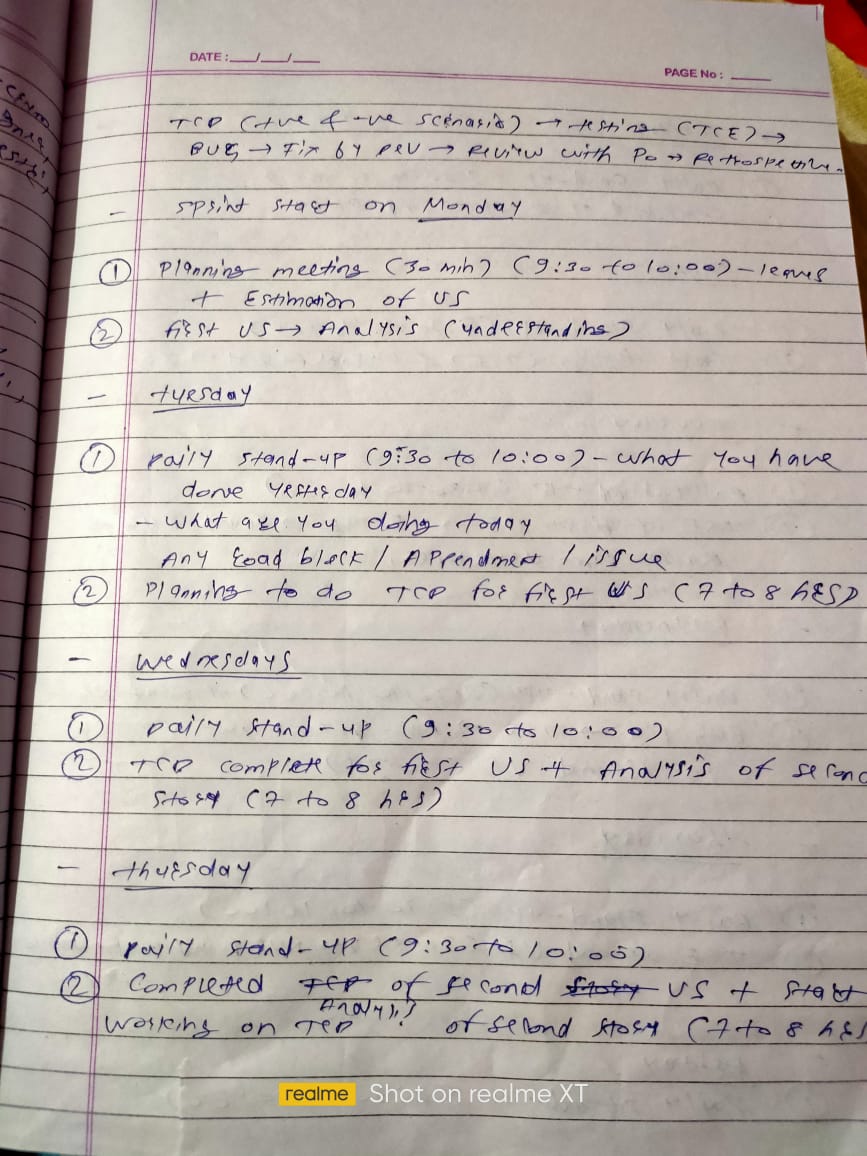 DATE : __/__/__
PAGE No : ____
TCD (+ve & -ve scenario) → testing (TCE) →
BUG → Fix by DEV → Review with PO → Retrospective.
- Sprint start on Monday
① Planning meeting (30 min) (9:30 to 10:00) - leaves
+ Estimation of US
② first US → Analysis (understanding)
- tuesday
① Daily stand-up (9:30 to 10:00) - what you have
done yesterday
- what are you doing today
Any road block / Appendment / issue
② Planning to do TCD for first US (7 to 8 hrs)
- wednesdays
① Daily stand-up (9:30 to 10:00)
② TCD complete for first US + Analysis of second
story (7 to 8 hrs)
- thursday
① Daily stand-up (9:30 to 10:00)
② Completed TCD of second story US + start
Analysis
working on TCD of second story (7 to 8 hrs
realme Shot on realme XT